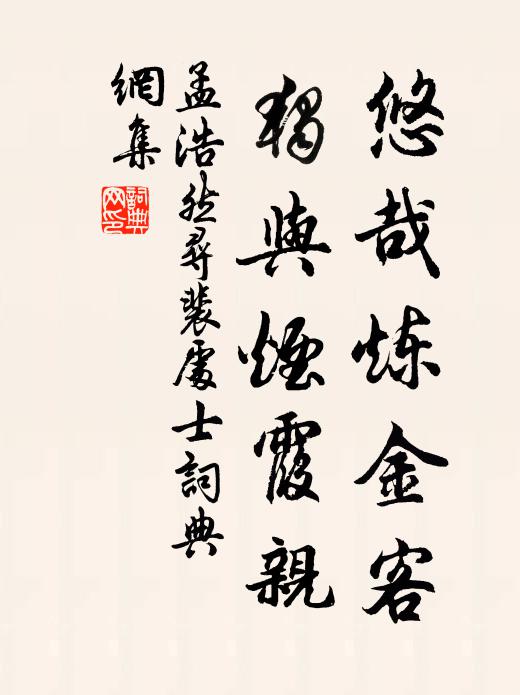 悠哉炼金客
獨與煙霞親
孟浩然尋裴處士詞典
網集
詞典
网印